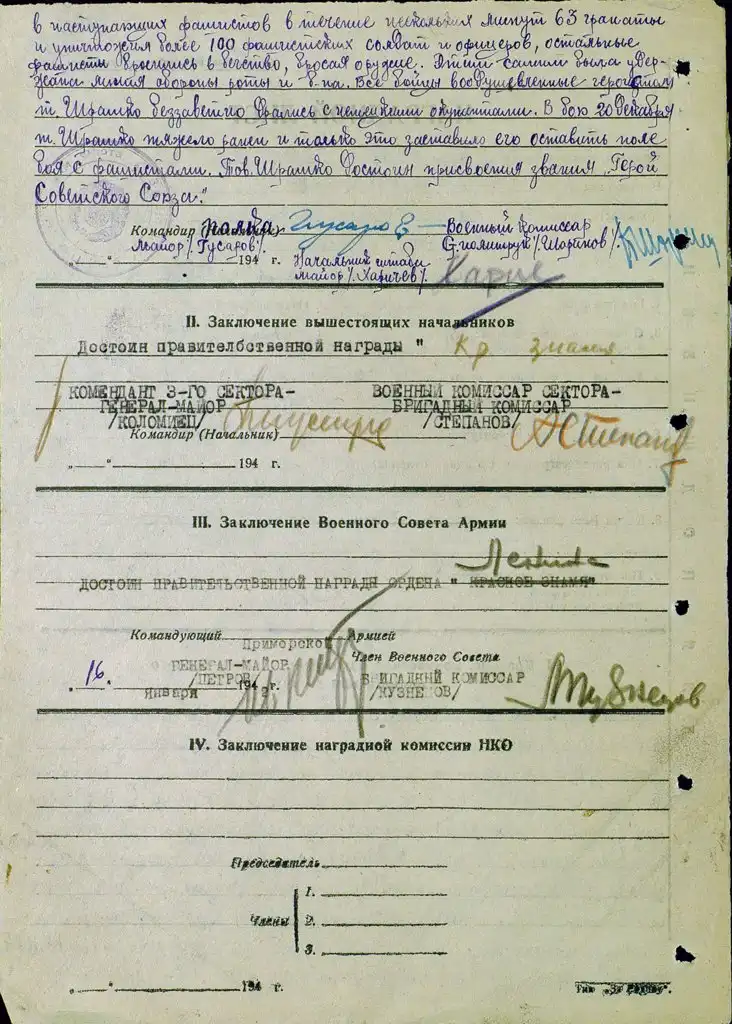 в наступающих фашистов в течение нескольких минут 63 гранаты
и уничтожил более 100 фашистских солдат и офицеров, остальные
фашисты бросились в бегство, бросая оружие. Этим самым была удер-
жана линия обороны роты и б-на. Все бойцы воодушевленные геройством
т. Шрамко беззаветно дрались с немецкими оккупантами. В бою 20 декабря
т. Шрамко тяжело ранен и только это заставило его оставить поле
боя с фашистами. Тов. Шрамко достоин присвоения звания „Герой
Советского Союза."
Командир (Начальник) полка Гусаров Военный комиссар
Майор /Гусаров/. Ст. политрук /Шаринов/
„ “ 194 г. Начальник штаба
Майор /Харичев/.
II. Заключение вышестоящих начальников
Достоин правителбственной награды " Кр знамя
КОМЕНДАНТ 3-ГО СЕКТОРА- ВОЕННЫЙ КОМИССАР СЕКТОРА-
ГЕНЕРАЛ-МАЙОР БРИГАДНЫЙ КОМИССАР
/КОЛОМИЕЦ/ /СТЕПАНОВ/
Командир (Начальник)
„ “ 194 г.
III. Заключение Военного Совета Армии
Ленина
ДОСТОИН ПРАВИТЕЛЬСТВЕННОЙ НАГРАДЫ ОРДЕНА " КРАСНОЕ ЗНАМЯ"
Командующий Приморской Армией
ГЕНЕРАЛ-МАЙОР Член Военного Совета
/ПЕТРОВ/ БРИГАДНЫЙ КОМИССАР
„ 16 “ Января 1942 г. /КУЗНЕЦОВ/
IV. Заключение наградной комиссии НКО
Председатель
1.
Члены 2.
3.
„ “ 194 г.